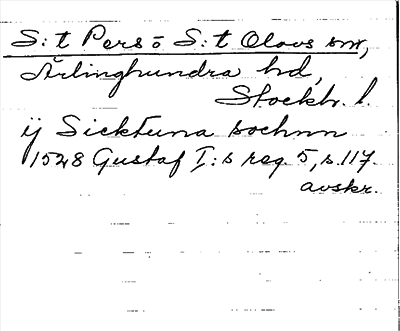 S:t Pers o S:t Olovs snr,
Ärlinghundra hd,
Stockh. l.
ij Sicktuna sochnn
1528 Gustaf I:s reg. 5, s. 117.
avskr.